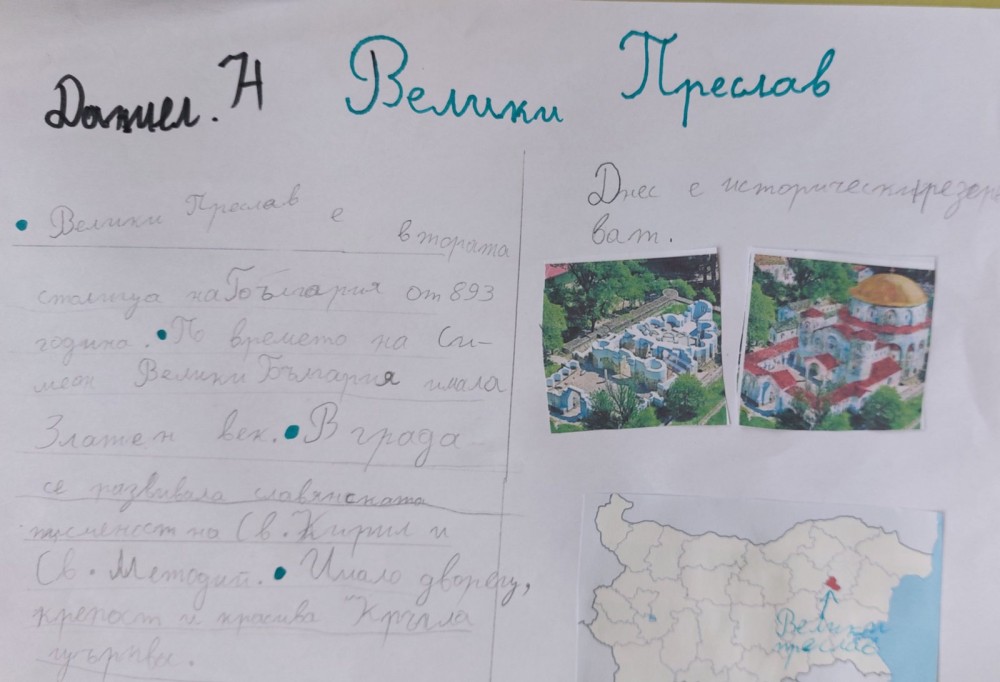 Даниел. Н
Велики Преслав
• Велики Преслав е втората
столица на България от 893
година. • По времето на Си-
меон Велики България имала
Златен век. • В града
се развивала славянската
писменост на Св. Кирил и
Св. Методий. • Имало дворец,
крепост и красива Кръгла
църква.
Днес е исторически резер
ват.
Велики
преслав